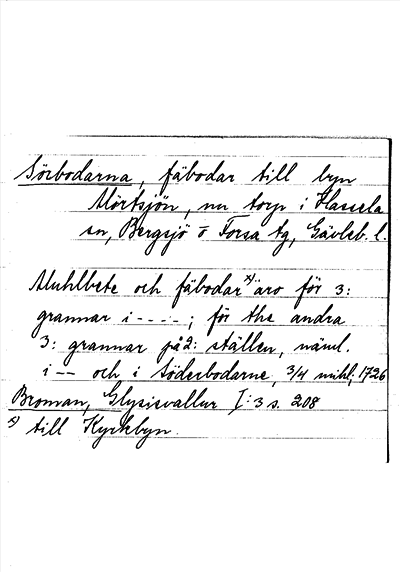 Sörbodarna, fäbodar till byn
Mörtsjön, nu torp i Hassela
sn, Bergsjö o Forsa tg, Gävleb. l.
Muhlbete och fäbodar x) äro för 3:
grannar i - - - -; för the andra
3: grannar på 2: ställen, näml.
i -- och i Söderbodarne, 3/4 mihl; 1726
Broman, Glysisvallur I:3 s. 208
x) till Kyrkbyn.